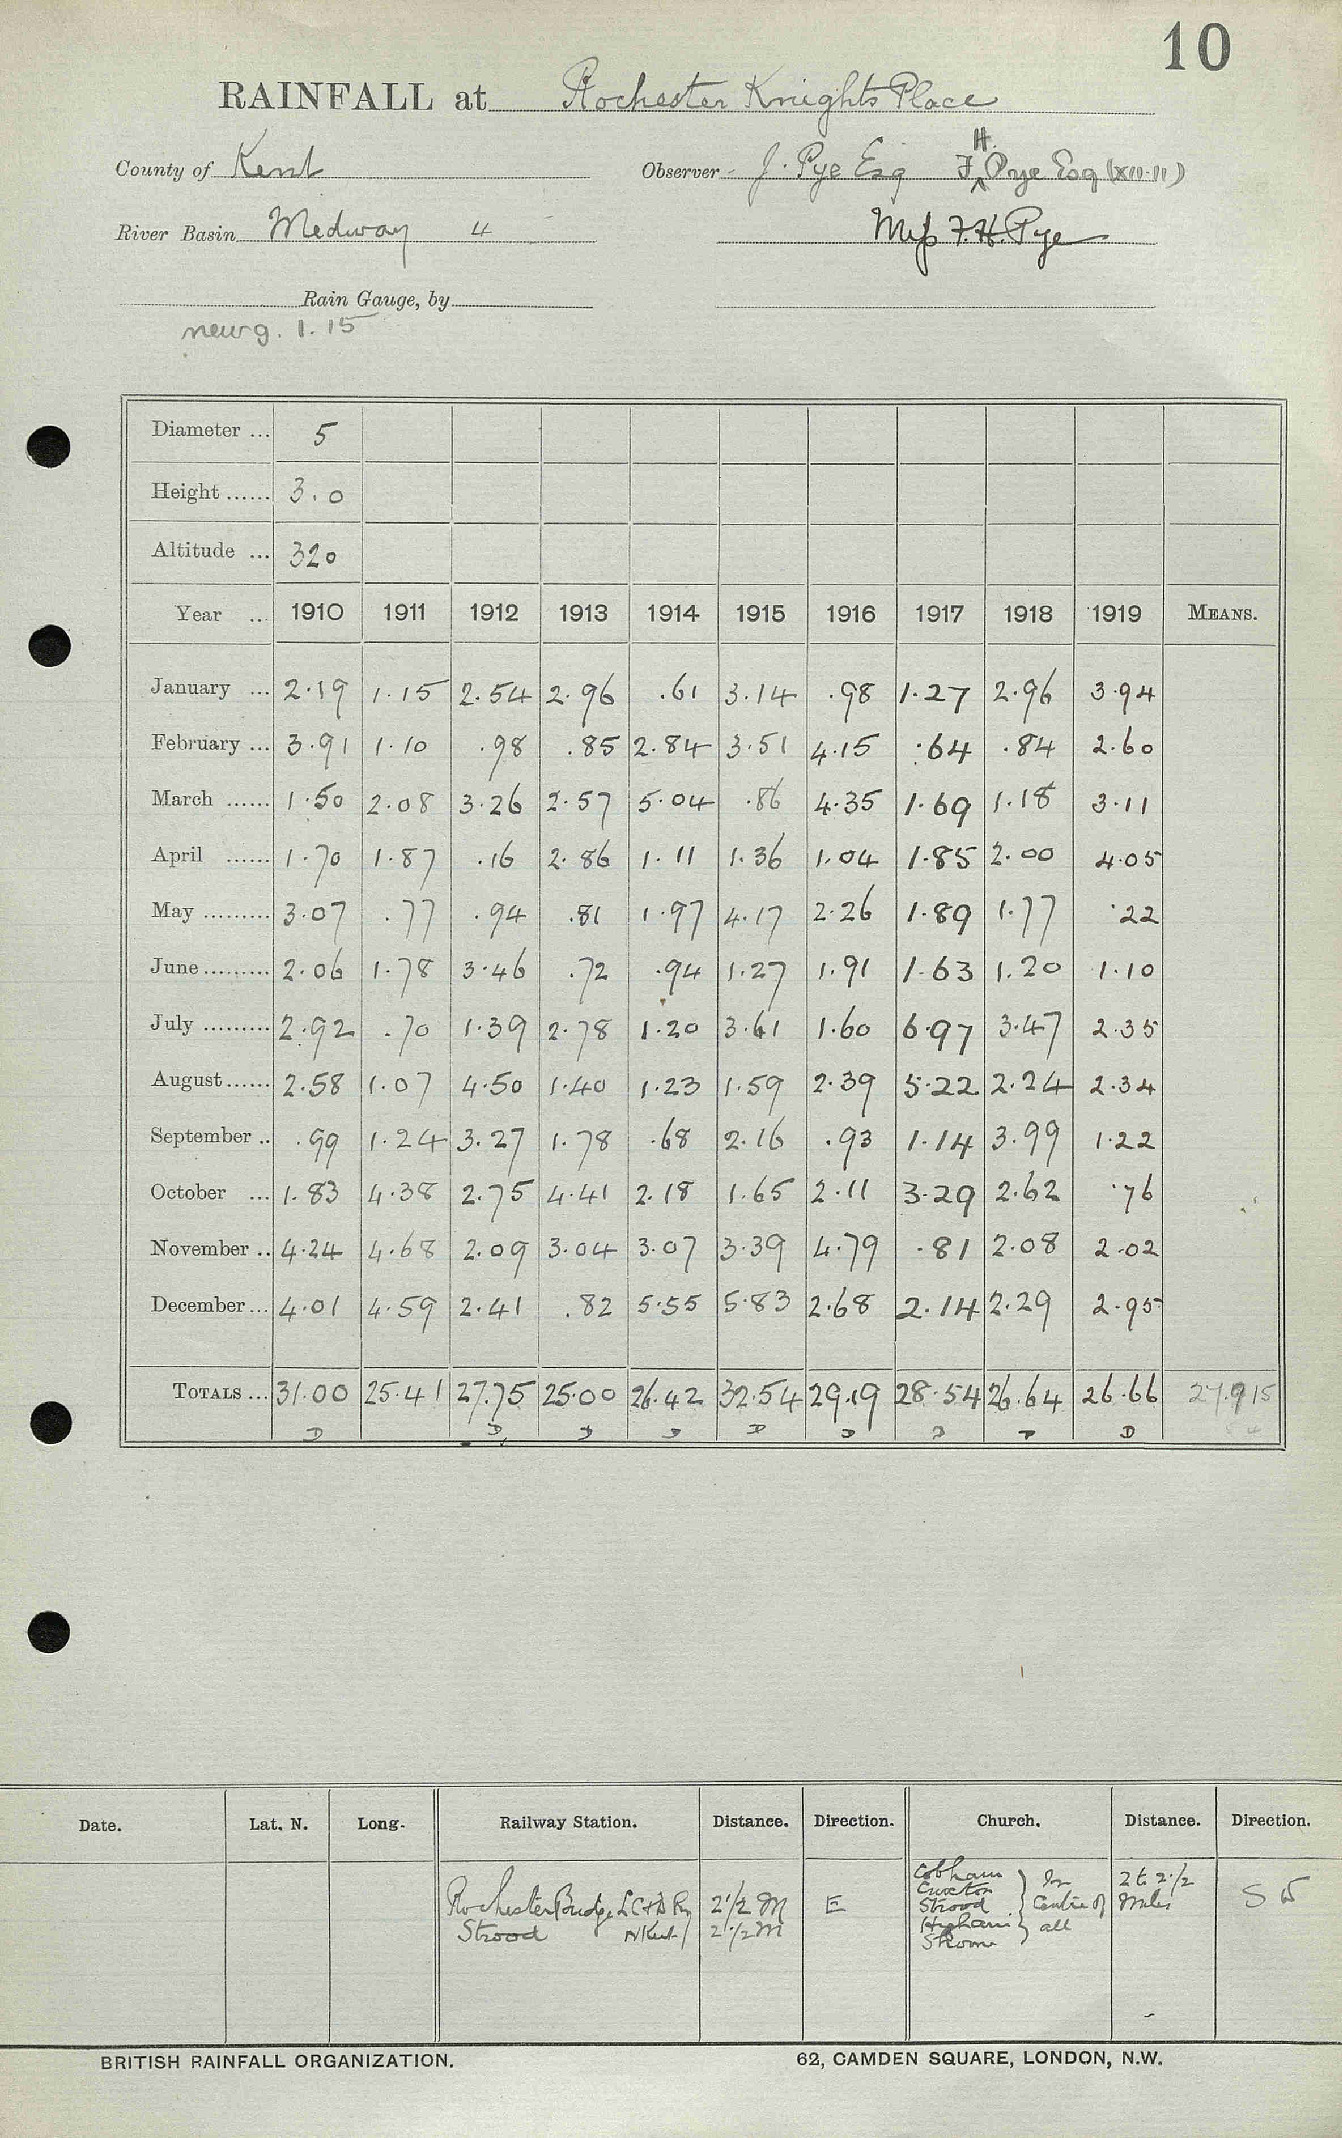 10
RAINFALL at Rochester Knights Place
County of Kent Observer J. Pye Esq F H Pye Esq (XII.11)
River Basin Medway 4 Miss F. H. Pye
Rain Gauge, by
new g. 1.15
Diameter ... 5
Height ...... 3.0
Altitude ... 320
Year ... 1910 1911 1912 1913 1914 1915 1916 1917 1918 1919 MEANS.
January ... 2.19 1.15 2.54 2.96 .61 3.14 .98 1.27 2.96 3.94
February ... 3.91 1.10 .98 .85 2.84 3.51 4.15 .64 .84 2.60
March ...... 1.50 2.08 3.26 2.57 5.04 .86 4.35 1.69 1.18 3.11
April ...... 1.70 1.87 .16 2.86 1.11 1.36 1.04 1.85 2.00 4.05
May ......... 3.07 .77 .94 .81 1.97 4.17 2.26 1.89 1.77 .22
June ......... 2.06 1.78 3.46 .72 .94 1.27 1.91 1.63 1.20 1.10
July ......... 2.92 .70 1.39 2.78 1.20 3.61 1.60 6.97 3.47 2.35
August ...... 2.58 1.07 4.50 1.40 1.23 1.59 2.39 5.22 2.24 2.34
September .. .99 1.24 3.27 1.78 .68 2.16 .93 1.14 3.99 1.22
October ... 1.83 4.38 2.75 4.41 2.18 1.65 2.11 3.29 2.62 .76
November .. 4.24 4.68 2.09 3.04 3.07 3.39 4.79 .81 2.08 2.02
December ... 4.01 4.59 2.41 .82 5.55 5.83 2.68 2.14 2.29 2.95
TOTALS ... 31.00 25.41 27.75 25.00 26.42 32.54 29.19 28.54 26.64 26.66 27.915
D D D D D D D D D
Date. Lat. N. Long. Railway Station. Distance. Direction. Church. Distance. Direction.
Rochester Bridge L C & D Ry 2 1/2 M E
Strood N Kent 2 1/2 M
Cobham
Cuxton
Strood
Higham
Shorne
In
Centre of
all
2 to 2 1/2
Miles
S W
BRITISH RAINFALL ORGANIZATION. 62, CAMDEN SQUARE, LONDON, N.W.